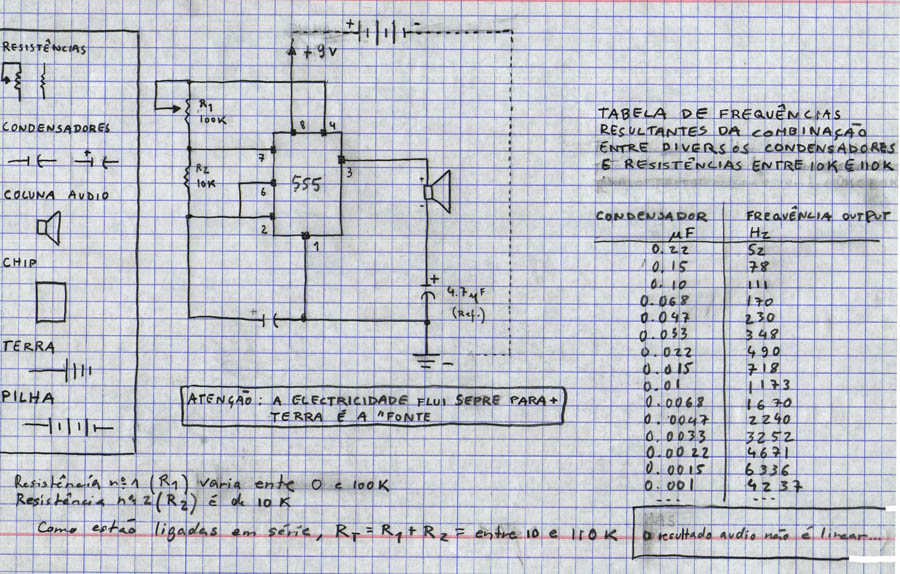 RESISTÊNCIAS
CONDENSADORES
COLUNA AUDIO
CHIP
TERRA
PILHA
+ -
+9V
R1
100K
R2
10K
8 4
7
3
6
555
2
1
+
-
+
4.7µF
(Ref.)
+
-
ATENÇÃO: A ELECTRICIDADE FLUI SEPRE PARA+
TERRA É A "FONTE
TABELA DE FREQUÊNCIAS
RESULTANTES DA COMBINAÇÃO
ENTRE DIVERSOS CONDENSADORES
E RESISTÊNCIAS ENTRE 10K E 110K
CONDENSADOR FREQUÊNCIA OUTPUT
µF Hz
0.22 52
0.15 78
0.10 111
0.068 170
0.047 230
0.033 348
0.022 490
0.015 718
0.01 1173
0.0068 1670
0.0047 2240
0.0033 3252
0.0022 4671
0.0015 6336
0.001 4237
--- ---
Resistência nº1 (R1) varia ente 0 e 100K
Resistência nº2 (R2) é de 10K
Como estão ligadas em série, RT = R1 + R2 = entre 10 e 110K
MAS
O resultado audio não é linear...